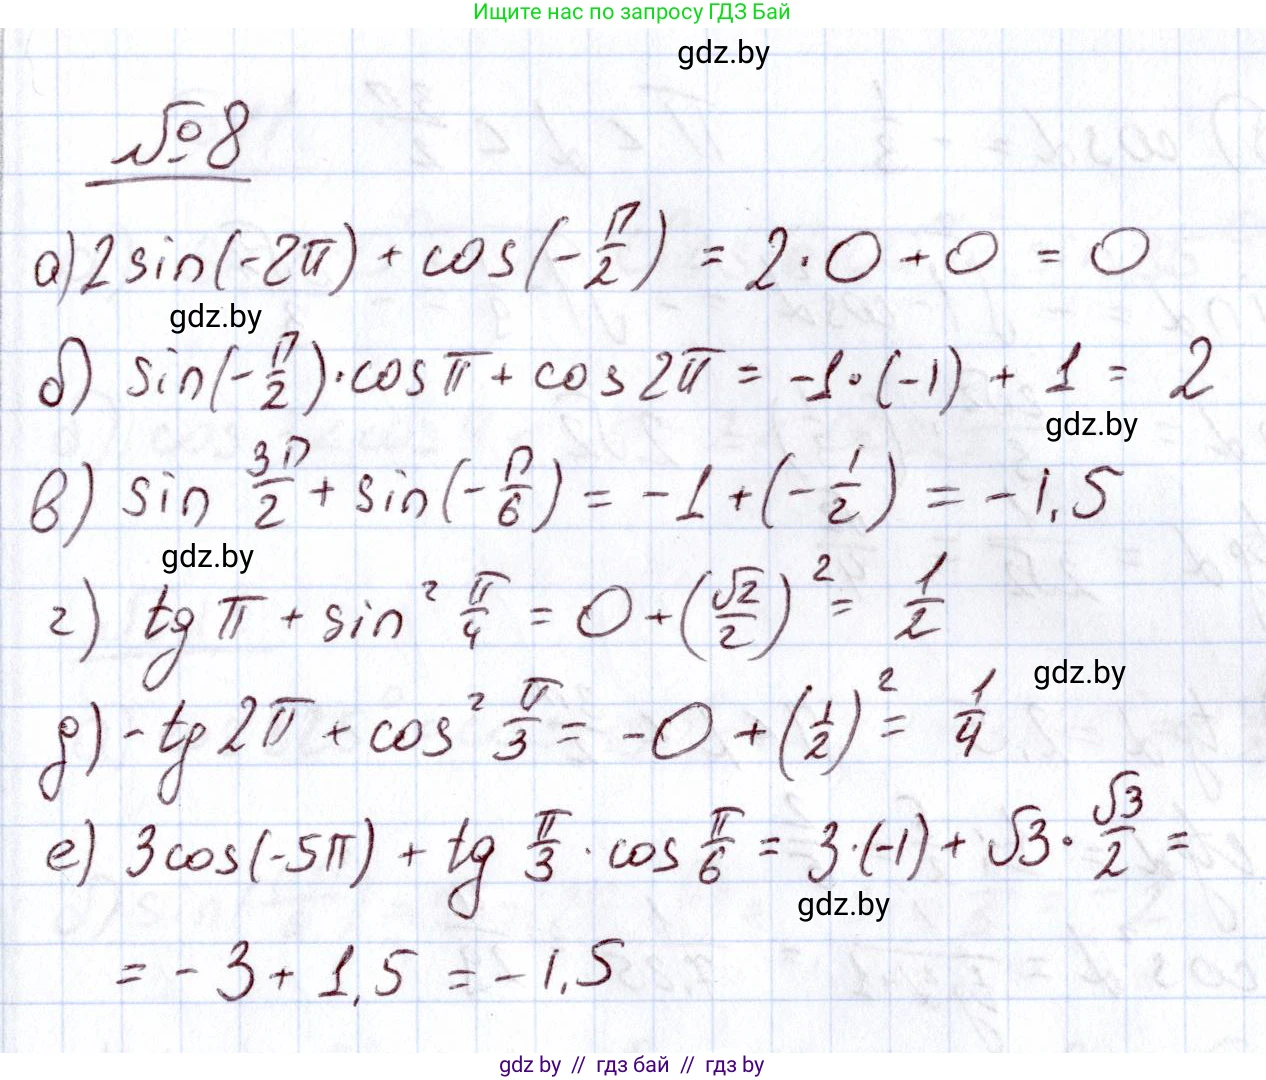 Ищите нас по запросу ГДЗ Бай
gdz.by
№8
а) 2 sin(-2π) + cos(-π/2) = 2·0 + 0 = 0
gdz.by
б) sin(-π/2)·cos π + cos 2π = -1·(-1) + 1 = 2
gdz.by
в) sin 3π/2 + sin(-π/6) = -1 + (-1/2) = -1,5
gdz.by
г) tg π + sin² π/4 = 0 + (√2/2)² = 1/2
gdz.by
д) -tg 2π + cos² π/3 = -0 + (1/2)² = 1/4
е) 3cos(-5π) + tg π/3 · cos π/6 = 3·(-1) + √3·√3/2 =
gdz.by
= -3 + 1,5 = -1,5
gdz.by // гдз бай // гдз by